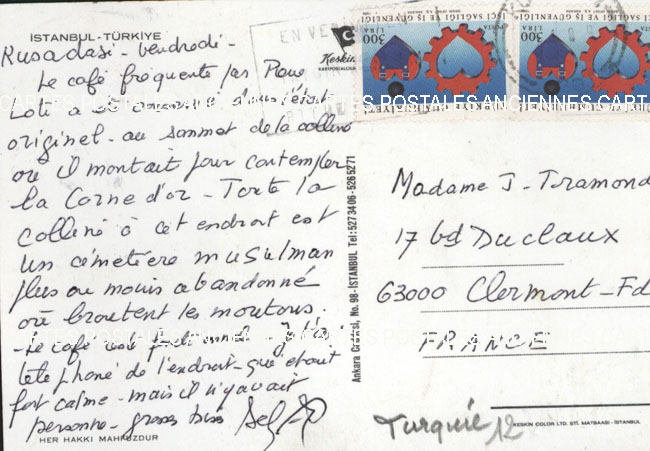 İSTANBUL-TÜRKİYE
Kusadasi - Vendredi -
Le café fréquenté par Pierre
Loti a été conservé dans l'état
originel - au sommet de la colline
où il montait pour contempler
la Corne d'or - Toute la
colline à cet endroit est
un cimetière musulman
plus ou moins abandonné
où broutent les moutons.
- Le café
téléphoné de l'endroit - qui était
fort calme - mais il n'y avait
personne - grosses bises
HER HAKKI MAHFUZDUR
EN VER
Keskin
KARTPOSTALCILIK
Ankara Caddesi, No. 98-İSTANBUL Tel: 5273406-5265271
İŞÇİ SAĞLIĞI VE İŞ GÜVENLİĞİ
300 LİRA
POSTA
TÜRKİYE CUMHURİYETİ
İŞÇİ SAĞLIĞI VE İŞ GÜVENLİĞİ
300 LİRA
POSTA
TÜRKİYE
CARTES POSTALES ANCIENNES CART
Madame J. Tramond
17 bd Duclaux
63000 Clermont-Fd
FRANCE
KESKİN COLOR LTD. ŞTİ. MATBAASI - İSTANBUL
Turquie 12